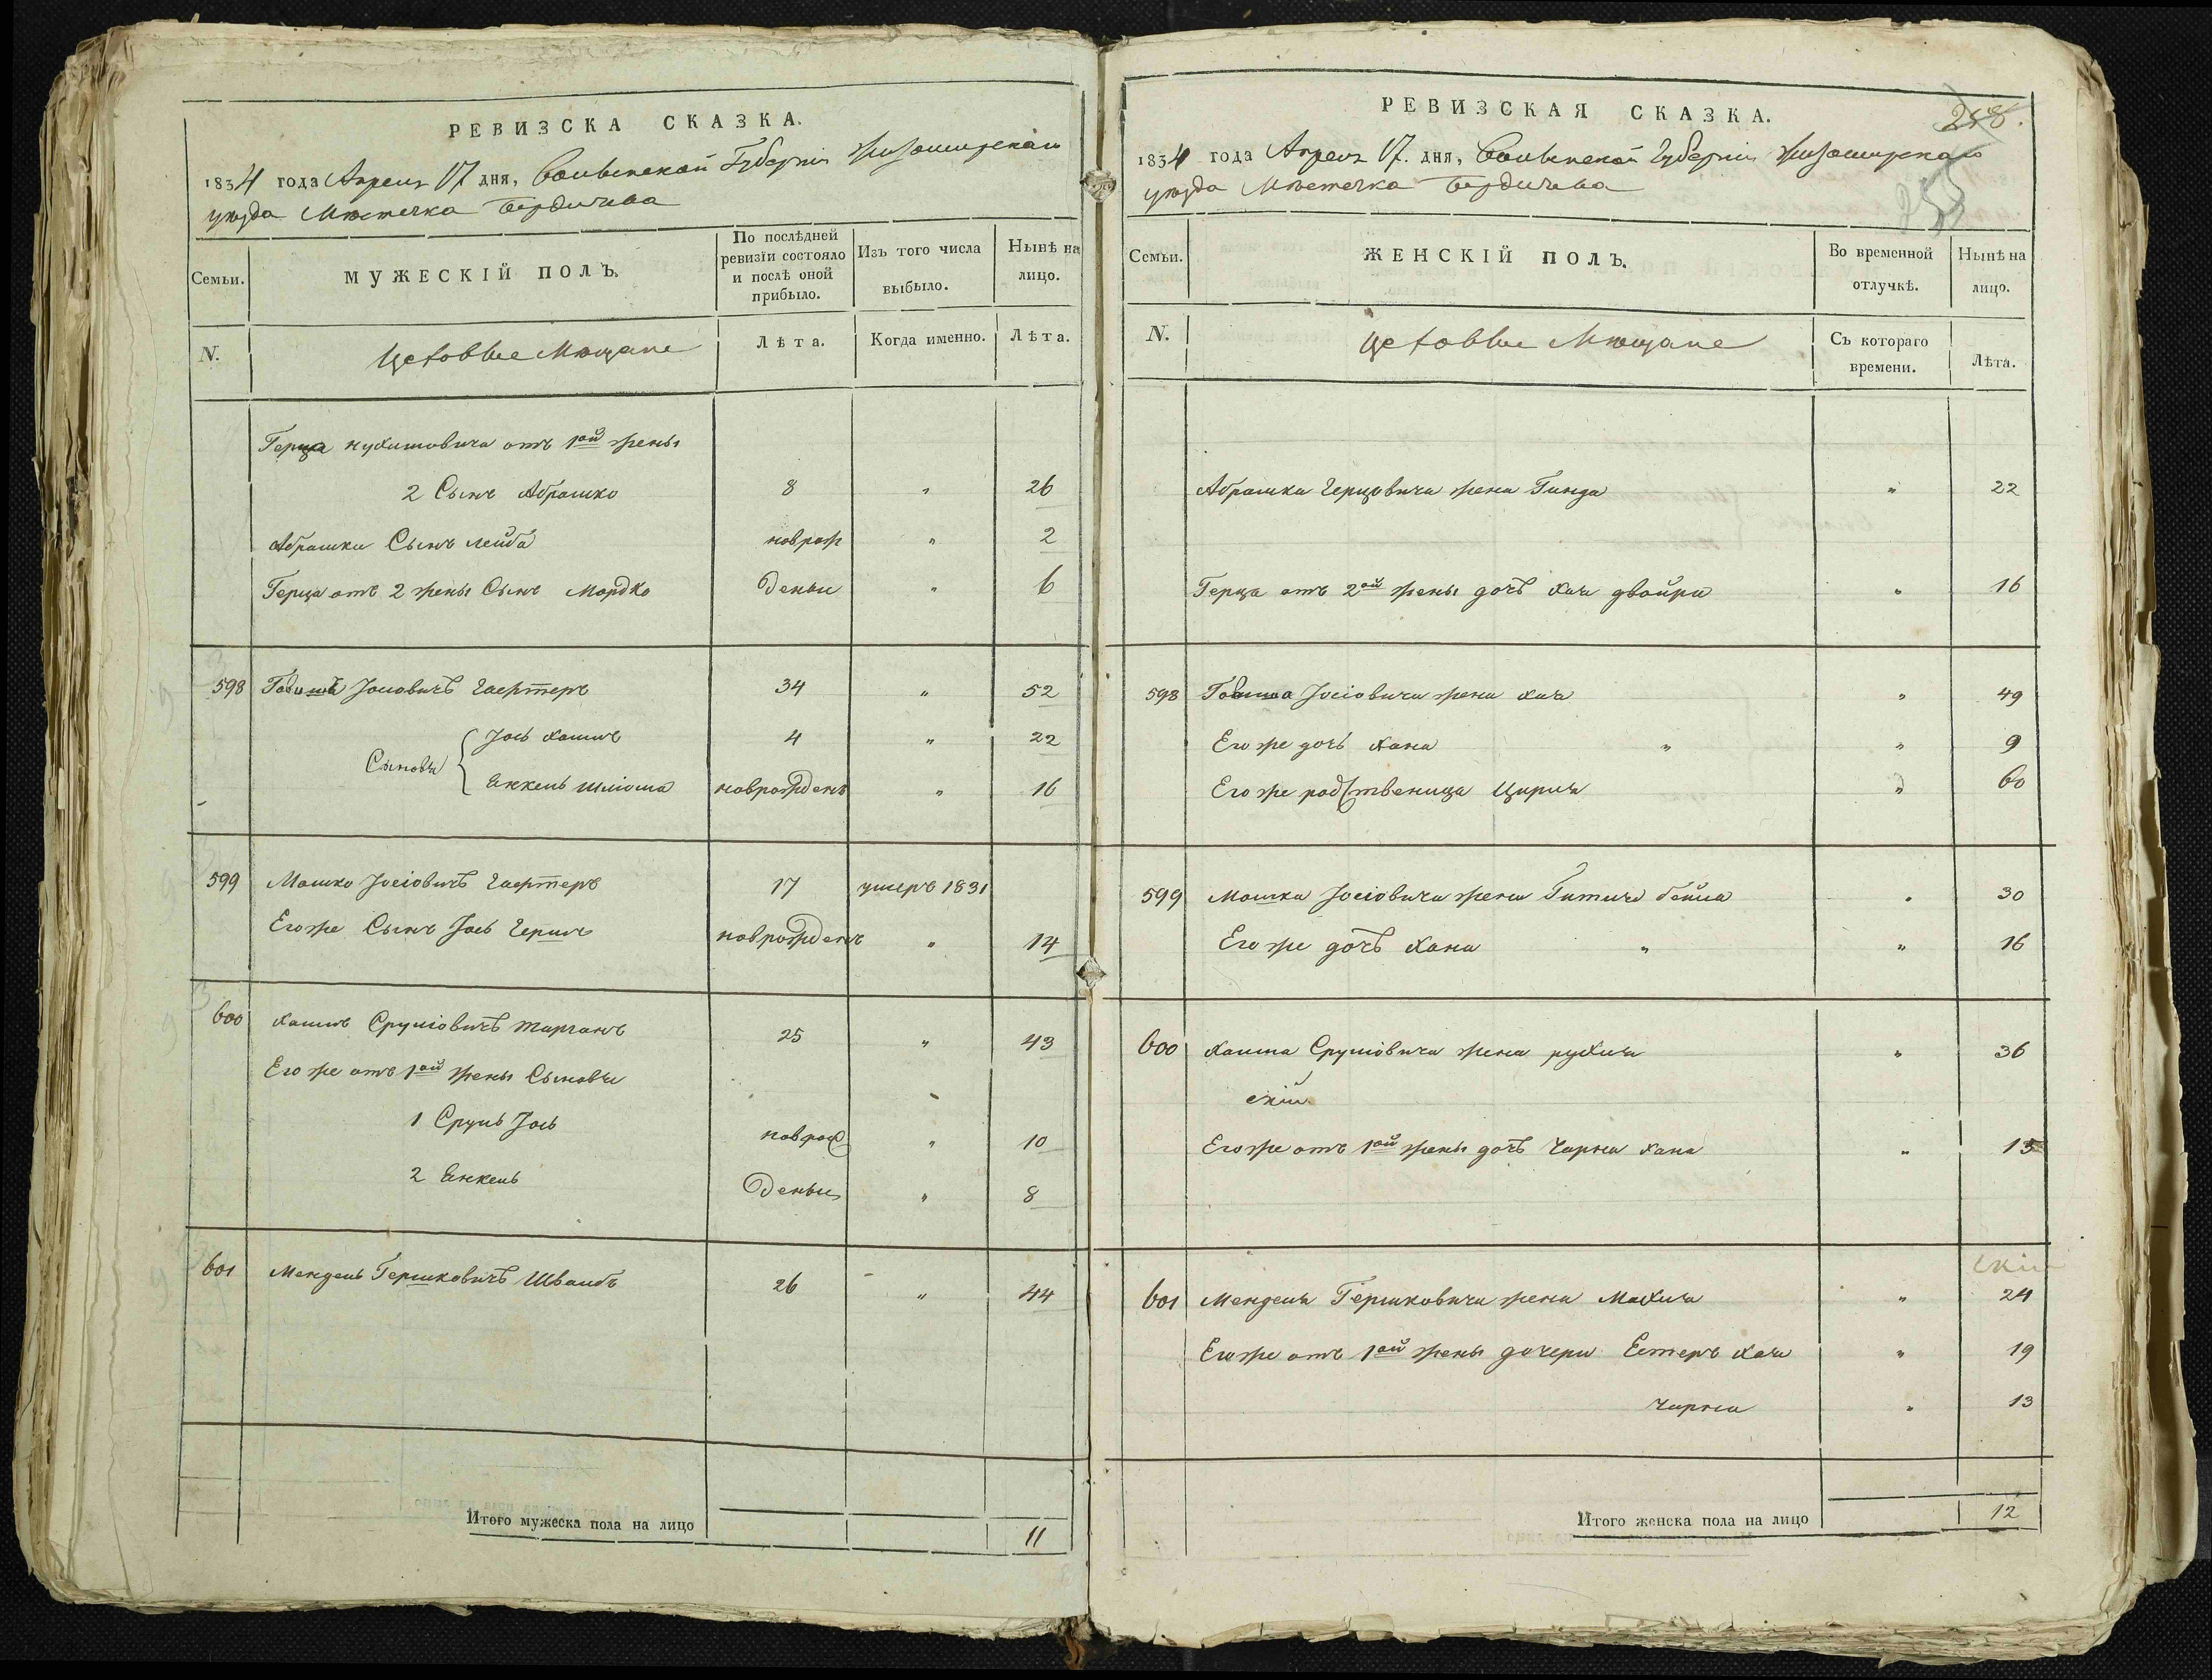 РЕВИЗСКА СКАЗКА.
1834 года Апреля 17 дня, Волынской Губернiи Житомирскаго
уѣзда Мѣстечка Бердичева
Семьи.
МУЖЕСКІЙ ПОЛЪ.
По послѣдней
ревизіи состояло
и послѣ оной
прибыло.
Изъ того числа
выбыло.
Нынѣ на
лицо.
N.
Цеховые Мѣщане
Лѣта.
Когда именно.
Лѣта.
Герца от 1ой жены
2 Сынъ Абрашко 8 " 26
Абрашки Сынъ Лейба новрож " 2
Герца отъ 2 жены Сынъ Мордко деныи " 6
598 Іосиовичъ 34 " 52
Сыновья
Іось Хаимъ 4 " 22
Янкель Шліома новорожденъ " 16
599 Мошко Іосіовичъ 17 умеръ 1831
Его же Сынъ Іось Гершъ новрожденъ " 14
600 Хаимъ Сруліовичъ Тарганъ 25 " 43
Его же отъ 1ой жены Сыновья
1 Сруль Іось новрож " 10
2 Янкель деныи " 8
601 Мендель Гершковичъ Швальбъ 26 " 44
Итого мужеска пола на лицо 11
РЕВИЗСКАЯ СКАЗКА.
258.
255
1834 года Апреля 17. дня, Волынской Губерніи Житомирскаго
уѣзда Мѣстечка Бердичева
Семьи.
ЖЕНСКІЙ ПОЛЪ.
Во временной
отлучкѣ.
Нынѣ на
лицо.
N.
Цеховые Мѣщане
Съ котораго
времени.
Лѣта.
Абрашка Герцовича жена Гинда " 22
Герца отъ 2ой жены дочь Хая Двойра " 16
598 Іосіовича жена Хая " 49
Его же дочь Хана " " 9
Его же родственица Циръля " 60
599 Мошка Іосіовича жена Бейла " 30
Его же дочь Хана " " 16
600 Хаима Сруліовича жена Рухля " 36
скій
Его же отъ 1ой жены дочь Чарна Хана " 15
601 Менделя Гершковича жена Махля " 24
Его же отъ 1ой жены дочери Естеръ Хая " 19
Чарна " 13
Итого женска пола на лицо 12